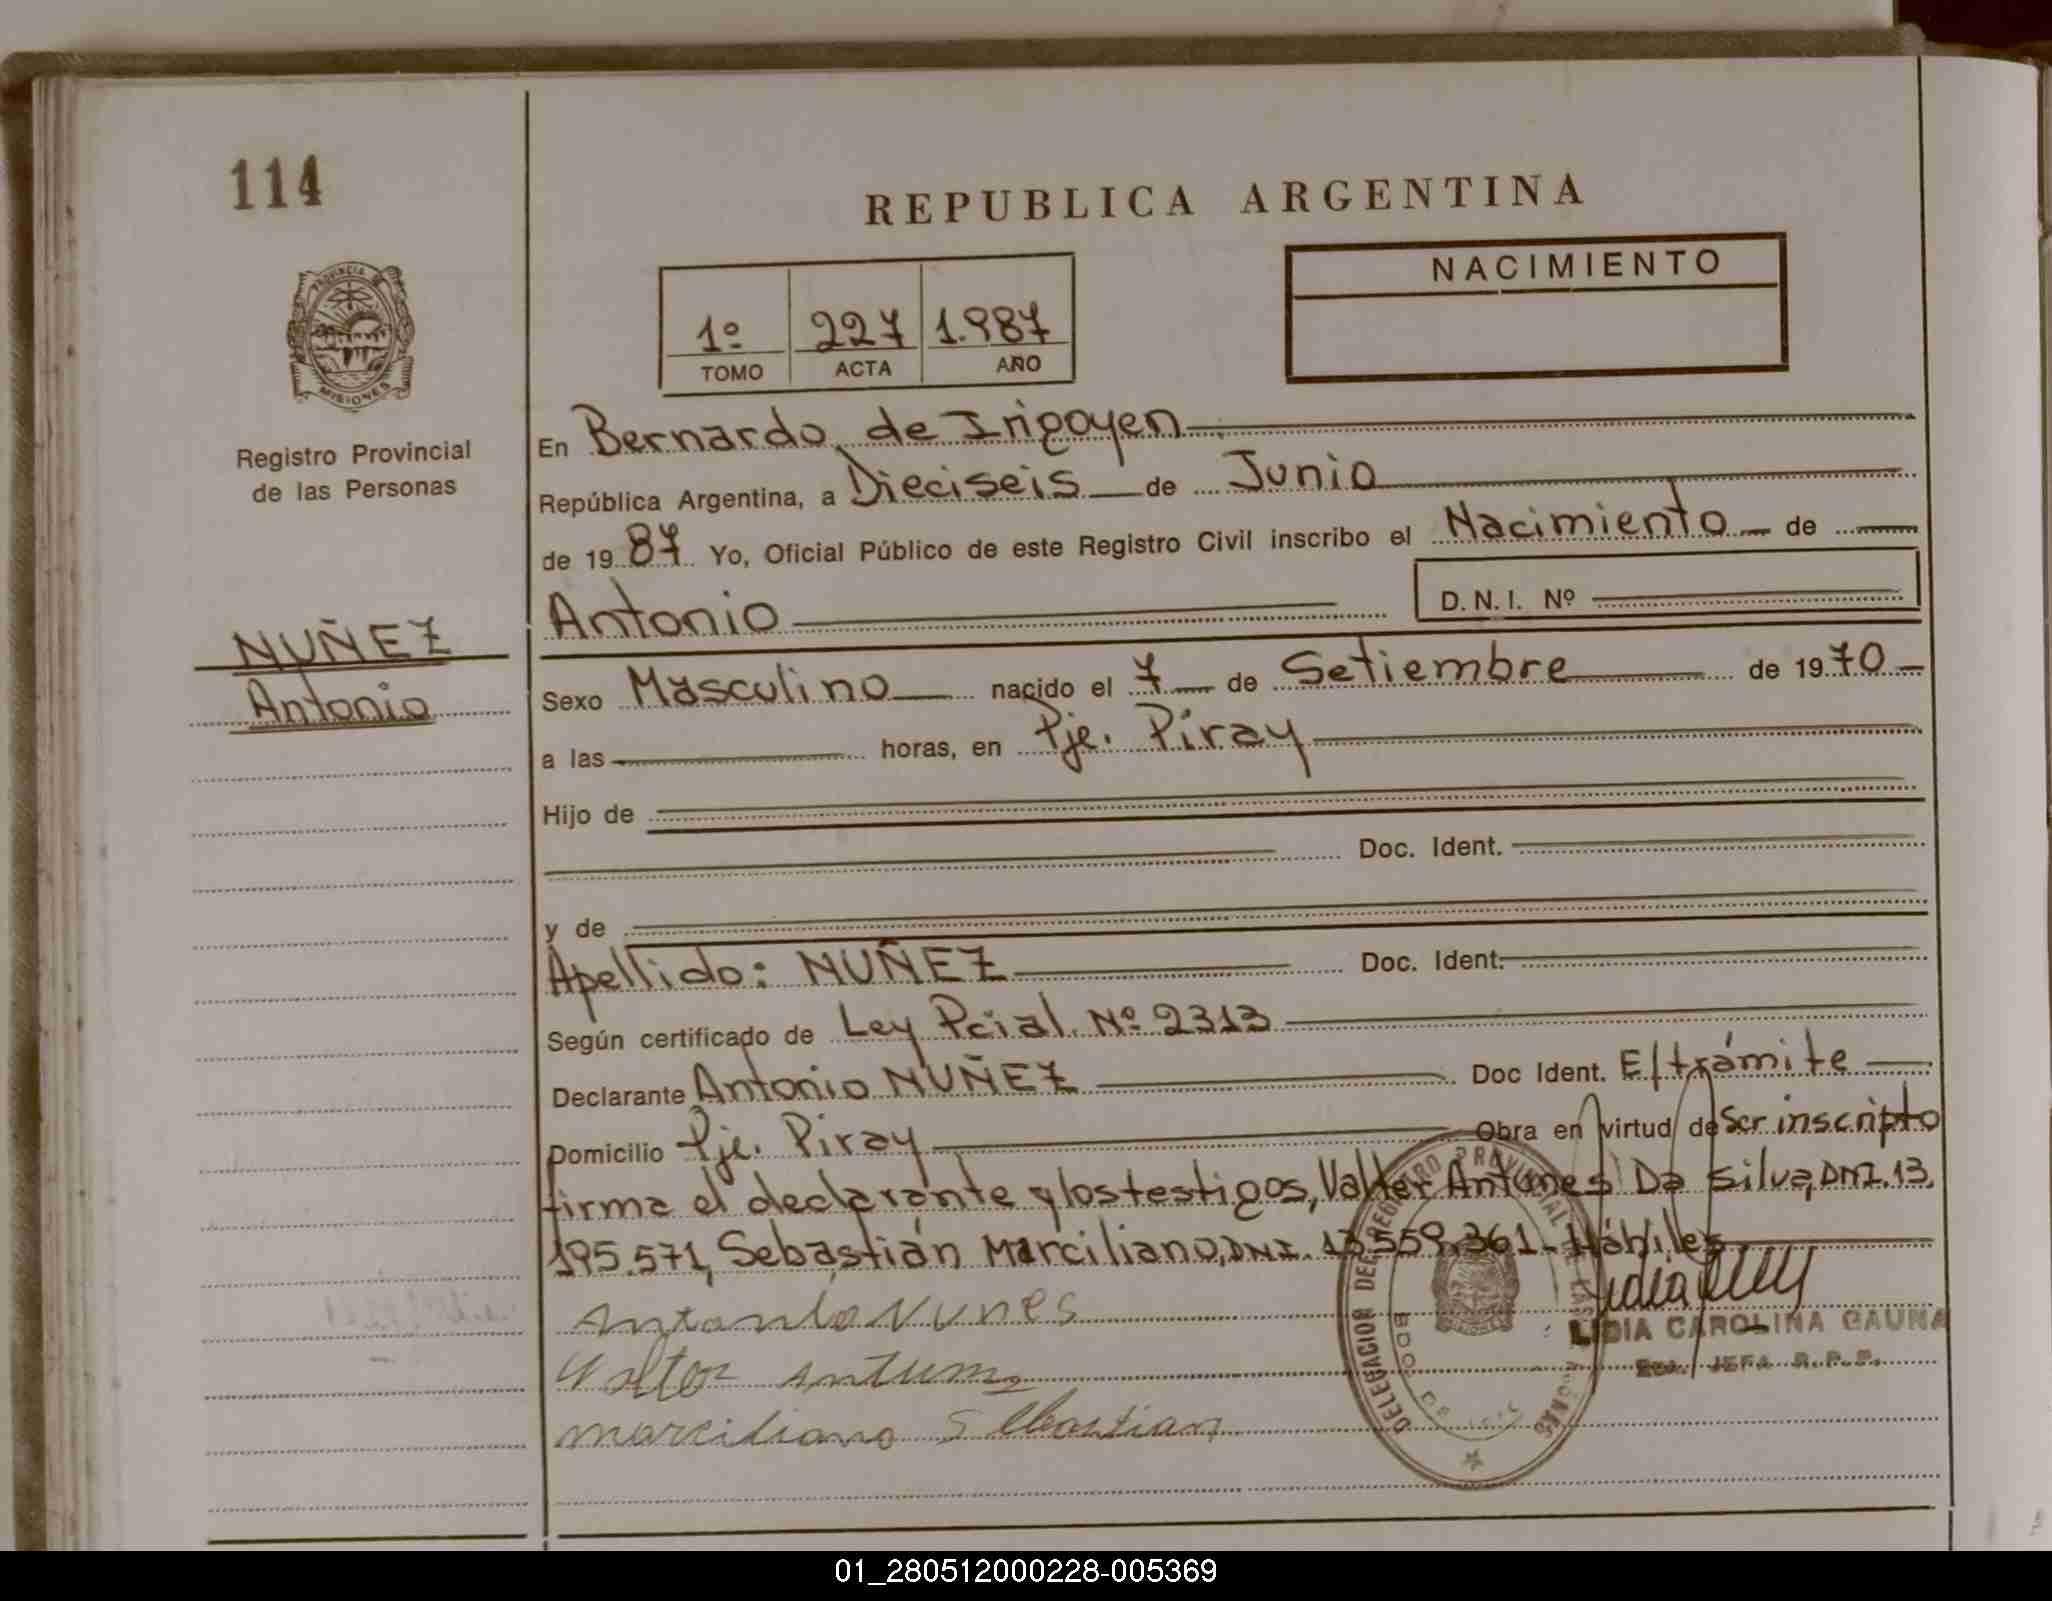 114
REPUBLICA ARGENTINA
NACIMIENTO
1º 227 1.987
TOMO ACTA AÑO
PROVINCIA DE MISIONES
Registro Provincial
de las Personas
NUÑEZ
Antonio
En Bernardo de Irigoyen
República Argentina, a Dieciseis de Junio
de 1987 Yo, Oficial Público de este Registro Civil inscribo el Nacimiento de
Antonio D.N.I. Nº
Sexo Masculino nacido el 7 de Setiembre de 1970
a las horas, en Pje. Piray
Hijo de
Doc. Ident.
y de
Apellido: NUÑEZ Doc. Ident.
Según certificado de Ley Pcial. Nº 2313
Declarante Antonio NUÑEZ Doc Ident. E/trámite
Domicilio Pje. Piray Obra en virtud de Ser inscripto
firma el declarante y los testigos, Valter Antunes Da Silva, DNI. 13.
195.571, Sebastián Marciliano, DNI. 13.559.361 - Hábiles
Antonio Nunes
Valtor Antum
marciliano Sebastian
DELEGACION DEL REGISTRO PROVINCIAL DE LAS PERSONAS
LIDIA CAROLINA GAUNA
JEFA R.P.P.
01_280512000228-005369